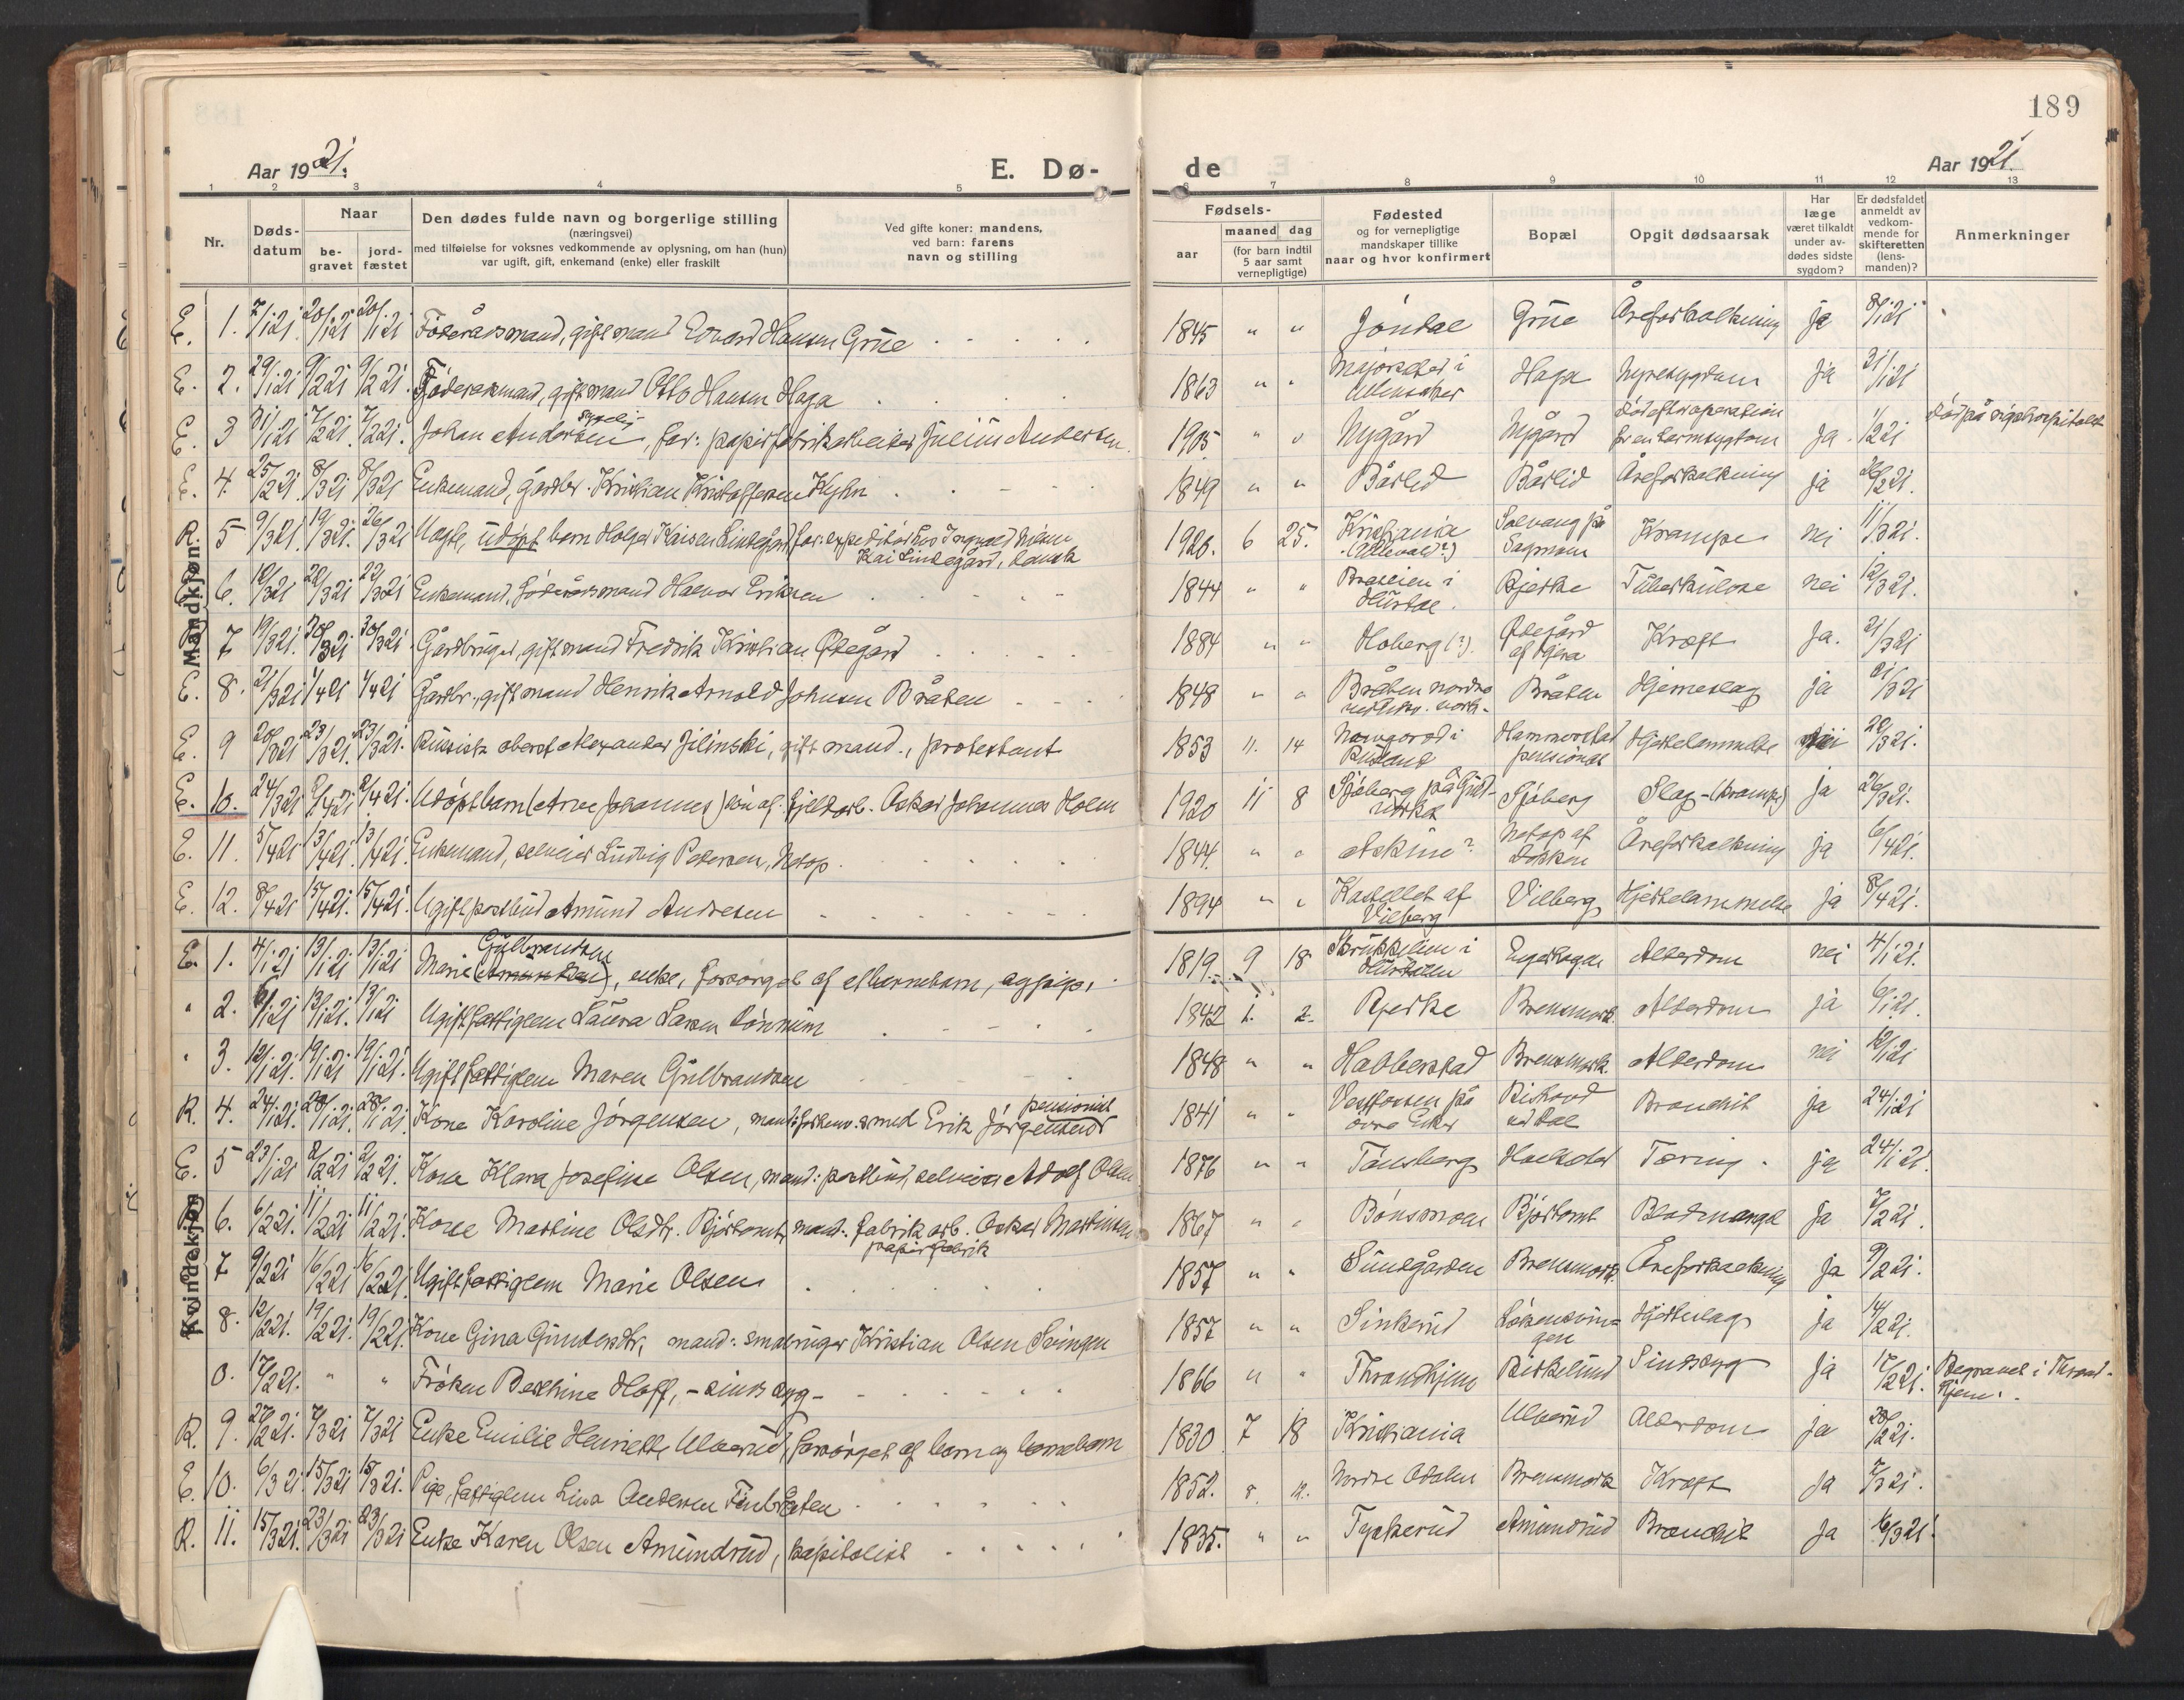 189
Aar 1921.
E. Dø-
de
Aar 1921.
1 2 3 4 5 6 7 8 9 10 11 12 13
Nr.
Døds-
datum
Naar
be-
gravet
jord-
fæstet
Den dødes fulde navn og borgerlige stilling
(næringsvei)
med tilføielse for voksnes vedkommende av oplysning, om han (hun)
var ugift, gift, enkemand (enke) eller fraskilt
Ved gifte koner: mandens,
ved barn: farens
navn og stilling
Fødsels-
aar
maaned dag
(for barn indtil
5 aar samt
vernepligtige)
Fødested
og for vernepligtige
mandskaper tillike
naar og hvor konfirmert
Bopæl
Opgit dødsaarsak
Har
læge
været tilkaldt
under av-
dødes sidste
sygdom?
Er dødsfaldet
anmeldt av
vedkom-
mende for
skifteretten
(lens-
manden)?
Anmerkninger
Mandkjøn:
E. 1. 7/1 21. 20/1 21 20/1 21 Føderådsmand, gift mand Edvard Hansen Grue 1845 " " Jøndal Grue Åreforkalkning ja 8/1 21
E. 2. 29/1 21 9/2 21 9/2 21. Føderådsmand, gift mand Otto Hansen Haga 1863 " " Majorsetet i Ullensaker Haga Nyresygdom ja 31/1 21
E. 3 31/1 21 7/2 21. 7/2 21. Johan Andersen, far: papirfabrikarbeider Julius Andersen. 1905 " " Nygård Nygård død efter operation for en tarmsygdom ja. 1/2 21 død på rigshospitalet
E. 4. 25/2 21 8/3 21 8/3 21 Enkemand, gårdbr. Kristian Kristoffersen Hyhn 1849 " " Bårlid Bårlid Åreforkalkning ja 26/2 21.
R. 5 9/3 21. 19/3 21. 26/3 21 Uægte, udøpt barn Holger Kaisen Lindegård, far: expeditør hos Ingvald
Kai Lindegård, dansk 1920. 6 25. Kristiania (Ullevold?) Solvang på Sagmoen Krampe nei 11/3 21.
E. 6. 12/3 21 22/3 21 22/3 21 Enkemand, føderådsmand Halvor Eriksen 1844 " " Braseien i Hurdal. Bjerke Tuberkulose nei 12/3 21.
7 19/3 21. 30/3 21 30/3 21 Gårdbruger, gift mand Fredrik Kristian Ødegård 1884 " " Hoberg (?). Ødegård af Gjera Kræft ja. 21/3 21
E. 8. 21/3 21 1/4 21 1/4 21 Gårdbr., gift mand Henrik Arnold Johnsen Bråten 1848 " " Bråten nordre Bråten Hjerneslag ja 21/3 21
E. 9 20/3 21 23/3 21. 23/3 21. Russisk oberst Alexander Jilinski, gift mand., protestant 1853 11. 14 Nowgorod i Rusland Hammerstad pensionat Hjertelammelse nei 22/3 21.
E. 10. 24/3 21 2/4 21 2/4 21. Udøpt barn (Arne Johannes) søn af: fjeldarb. Oskar Johannes Holm 1920 11 8 Sjøberg på Guldverket Sjøberg Slag - (krampe) ja 26/3 21.
E. 11. 5/4 21 13/4 21. 13/4 21. Enkemand, selveier Ludvig Petersen, Netop. 1844. " " Askim? Netop af Dokken Åreforkalkning ja 6/4 21.
E. 12. 8/4 21 15/4 21. 15/4 21. Ugift postbud Amund Andresen 1894 " " Kastellet af Vilberg Vilberg Hjertelammelse ja 8/4 21.
Kvindekjøn
E. 1. 4/1 21 13/1 21 13/1 21 Marie Gulbrandsen, enke, forsørget af et barnebarn, 1819. 9 18 Skrukkelien i Hurdalen Engerhagan Alderdom nei 4/1 21.
" 2. 6/1 21 13/1 21. 13/1 21 Ugift fattiglem Laura Larsen Dønnum 1842 1. 2. Bjerke Brensmork. Alderdom ja 6/1 21.
" 3. 12/1 21. 19/1 21 19/1 21. Ugift fattiglem Maren Gulbrandsen 1848 " " Habberstad Brensmork. Alderdom nei 12/1 21
R. 4. 24/1 21. 28/1 21. 28/1 21. Kone Karoline Jørgensen, mand: smed Erik Jørgensen pensionist 1841 " " Vestfossen på øvre Eker ved Dal Bronchit ja 24/1 21
E. 5 23/1 21 2/2 21 2/2 21. Kone Klara Josefine Olsen, mand: postbud, selveier Adolf Olsen 1876 " " Tønsberg Holsetet Tæring. ja 24/1 21.
6. 6/2 21. 11/2 21 11/2 21. Kone Martine Olsdtr. Bjørtomt, mand: fabrikarb. Oskar Martinsen
papirfabrik 1867 " " Bonsmoen Bjørtomt Blodmangel ja 7/2 21.
7 9/2 21 16/2 21 16/2 21. Ugift fattiglem Marie Olsen 1857 " " Sundgården Brensmork. Åreforkalkning ja 9/2 21.
8. 12/2 21. 19/2 21. 19/2 21. Kone Gina Gundersdtr, mand: småbruger Kristian Olsen Svingen 1857 " " Sinkerud Løkensvingen Hjerteslag ja 14/2 21.
0. 17/2 21. " " Frøken Berthine Hoff, - sindssyg - 1866 " " Throndhjem Birkelund Sindssyg ja 17/2 21. Begravet i Throndhjem.
R. 9. 27/2 21. 7/3 21 7/3 21 Enke Emilie Henriette Ulverud, forsørget af barn og barnebarn 1830. 7 18 Kristiania Ulverud Alderdom ja 28/2 21.
E. 10. 6/3 21. 15/3 21 15/3 21. Pige, fattiglem Lina Andersen Finbråten 1852. 8. 12. Nordre Odalen Brensmork Kræft ja 7/3 21.
R. 11. 15/3 21. 23/3 21 23/3 21 Enke Karen Olsen Amundrud, kapitalist 1835. " " Tyskerud Amundrud Bronchit ja 16/3 21.